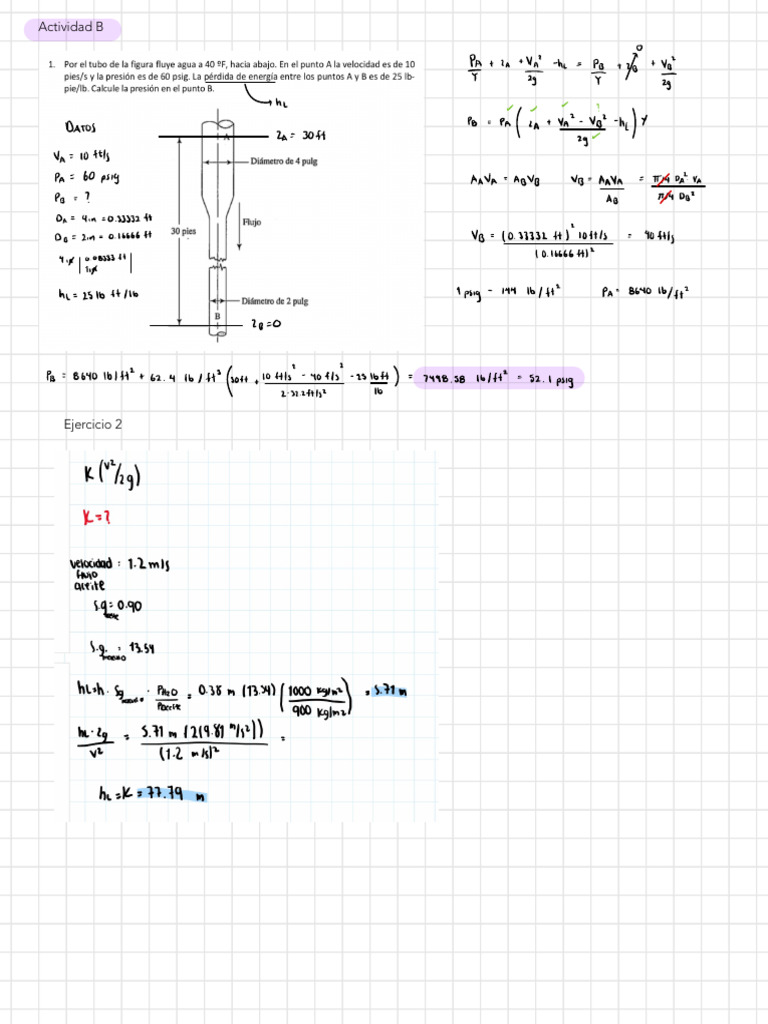 Actividad B
1. Por el tubo de la figura fluye agua a 40 ºF, hacia abajo. En el punto A la velocidad es de 10
pies/s y la presión es de 60 psig. La pérdida de energía entre los puntos A y B es de 25 lb-
pie/lb. Calcule la presión en el punto B.
hL
DATOS
VA = 10 ft/s
PA = 60 psig
PB = ?
DA = 4in = 0.33332 ft
DB = 2in = 0.16666 ft
4in | 0.08333 ft |
1in
hL = 25 lb ft/lb
A
ZA = 30 ft
Diámetro de 4 pulg
Flujo
30 pies
Diámetro de 2 pulg
B
ZB = 0
PA/γ + ZA + VA²/2g - hL = PB/γ + ZB + VB²/2g
0
PB = PA ( ZA + VA² - VB²/2g - hL ) γ
AAVA = ABVB VB = AAVA/AB = π/4 DA² VA / π/4 DB²
VB = (0.33332 ft)² 10 ft/s / (0.16666 ft)² = 40 ft/s
1 psig - 144 lb/ft² PA = 8640 lb/ft²
PB = 8640 lb/ft² + 62.4 lb/ft³ (30ft + 10 ft/s² - 40 f/s² / 2·32.2ft/s² - 25 lb ft/lb) = 7498.58 lb/ft² = 52.1 psig
Ejercicio 2
K (v²/2g)
K = ?
velocidad : 1.2 m/s
flujo
aceite
s.g = 0.90
S.g. = 13.54
hL = h · Sg · PH2O/Paceite = 0.38 m (13.54) (1000 kg/m² / 900 kg/m²) = 5.71 m
hL · 2g / v² = 5.71 m (2(9.81 m/s²)) / (1.2 m/s)² =
hL = K = 77.79 m